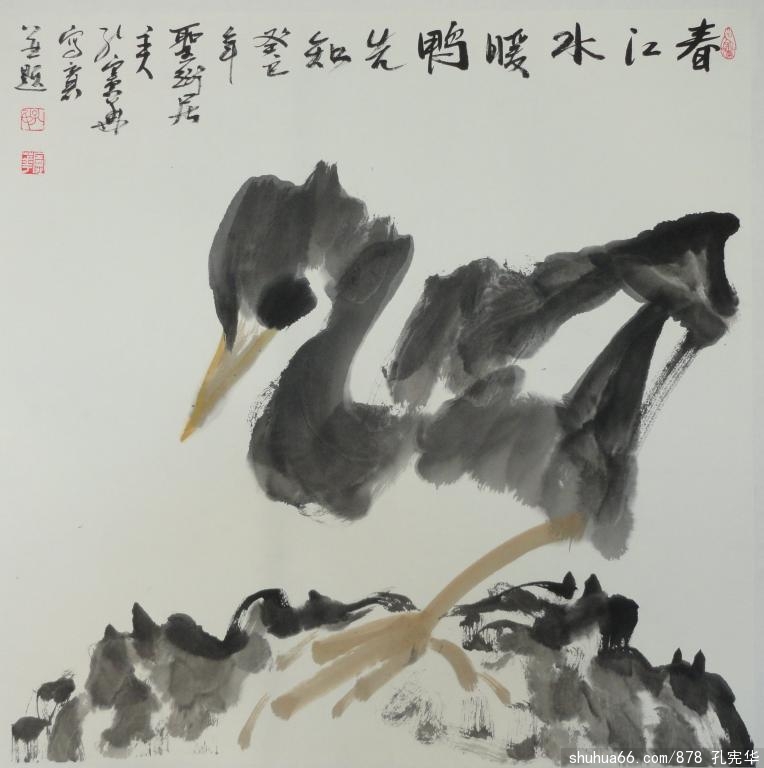 春江水暖鸭先知
癸巳
年
聖居
主人
孔宪华
写意
並題
shuhua66.com/878 孔宪华